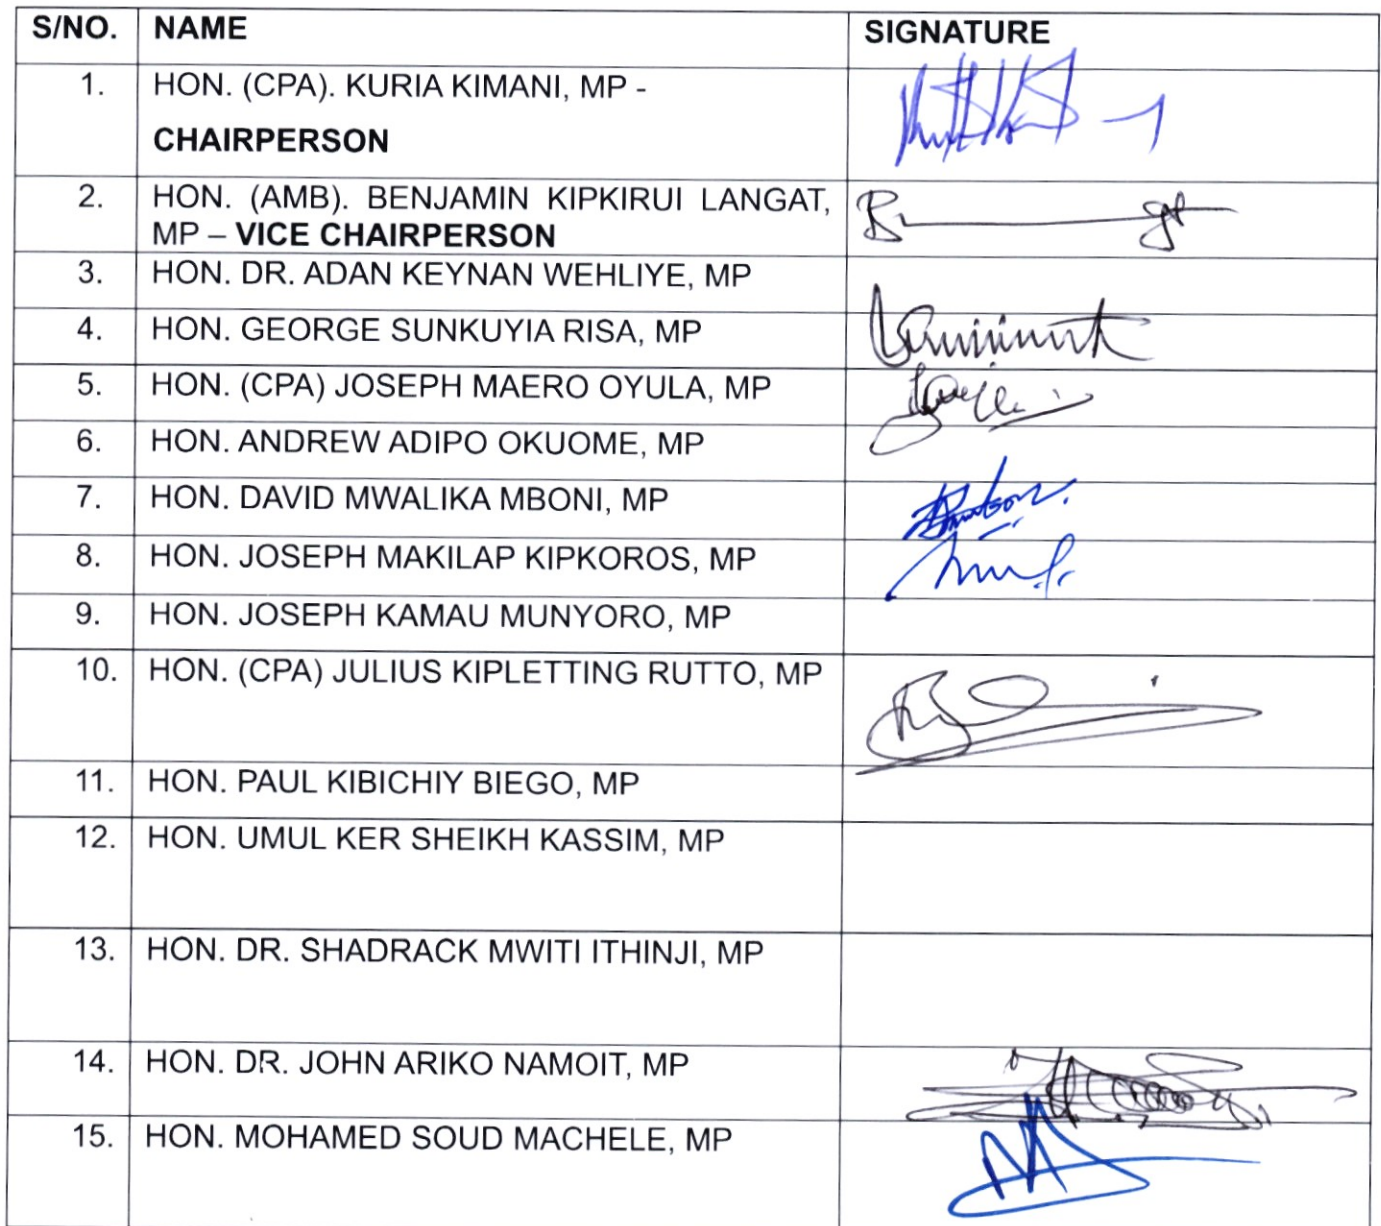 S/NO. NAME SIGNATURE
1. HON. (CPA). KURIA KIMANI, MP -
CHAIRPERSON
2. HON. (AMB). BENJAMIN KIPKIRUI LANGAT,
MP – VICE CHAIRPERSON
3. HON. DR. ADAN KEYNAN WEHLIYE, MP
4. HON. GEORGE SUNKUYIA RISA, MP
5. HON. (CPA) JOSEPH MAERO OYULA, MP
6. HON. ANDREW ADIPO OKUOME, MP
7. HON. DAVID MWALIKA MBONI, MP
8. HON. JOSEPH MAKILAP KIPKOROS, MP
9. HON. JOSEPH KAMAU MUNYORO, MP
10. HON. (CPA) JULIUS KIPLETTING RUTTO, MP
11. HON. PAUL KIBICHIY BIEGO, MP
12. HON. UMUL KER SHEIKH KASSIM, MP
13. HON. DR. SHADRACK MWITI ITHINJI, MP
14. HON. DR. JOHN ARIKO NAMOIT, MP
15. HON. MOHAMED SOUD MACHELE, MP